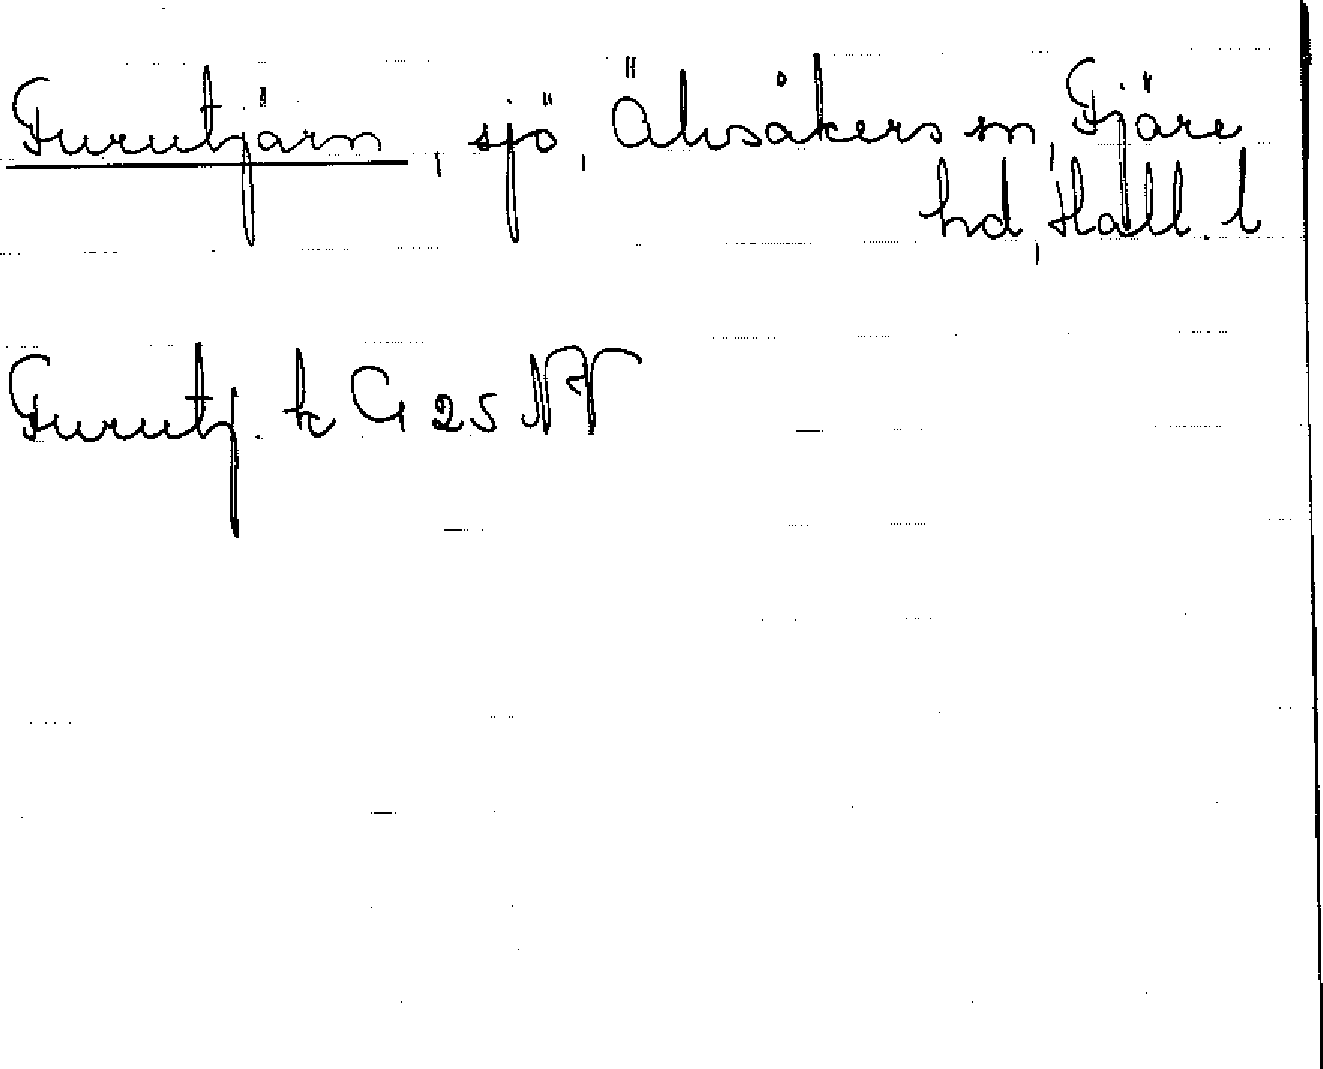 Furutjärn, sjö, Älvsåkers sn, Fjäre
hd, Hall. l
Furutj. k G 25 NV